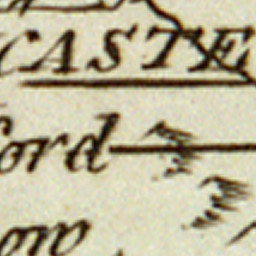 CASTE
ford
ow